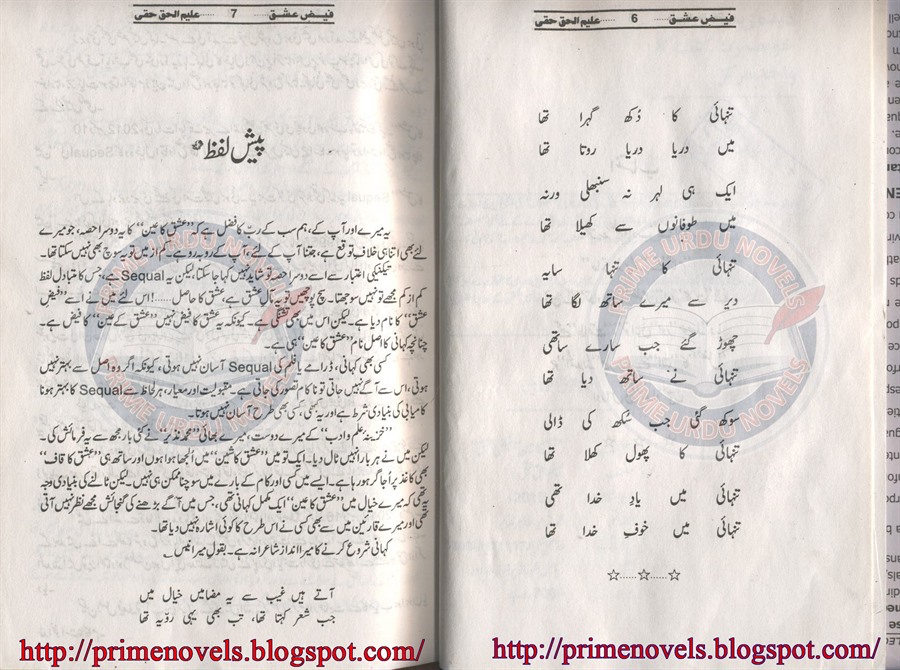 فیضِ عشق ...... 6 ...... علیم الحق حقی
تنہائی کا دُکھ گہرا تھا
میں دریا دریا روتا تھا
ایک ہی لہر نہ سنبھلی ورنہ
میں طوفانوں سے کھیلا تھا
تنہائی کا تنہا سایہ
دیر سے میرے ساتھ لگا تھا
چھوڑ گئے جب سارے ساتھی
تنہائی نے ساتھ دیا تھا
سوکھ گئی جب سُکھ کی ڈالی
تنہائی کا پھول کھلا تھا
تنہائی میں یادِ خدا تھی
تنہائی میں خوفِ خدا تھا
☆......☆......☆
http://primenovels.blogspot.com/
فیضِ عشق ...... 7 ...... علیم الحق حقی
پیش لفظ
یہ میرے اور آپ کے، ہم سب کے ربّ کا فضل ہے کہ ”عشق کا عین“ کا یہ دوسرا حصہ، جو میرے
لئے بھی اتنا ہی خلافِ توقع ہے، جتنا آپ کے لئے، آپ کے روبرو ہے۔ کم از کم میں تو یہ سوچ بھی نہیں سکتا تھا۔
تیکنیکی اعتبار سے اسے دوسرا حصہ تو شاید نہیں کہا جا سکتا، لیکن یہ Sequal ہے، جس کا متبادل لفظ
کم از کم مجھے تو نہیں سوجھتا۔ سچ پوچھیں تو یہ مآلِ عشق ہے، عشق کا حاصل......! اس لئے میں نے اسے ”فیضِ
عشق“ کا نام دیا ہے۔ لیکن اس میں بھی تشنگی ہے۔ کیونکہ یہ عشق کا فیض نہیں ”عشق کے عین“ کا فیض ہے۔
چنانچہ کہانی کا اصل نام ”عشق کا عین“ ہی ہے۔
کسی بھی کہانی، ڈرامے یا فلم کی Sequal آسان نہیں ہوتی، کیونکہ اگر وہ اصل سے بہتر نہیں
ہوتی، اس سے آگے نہیں جاتی تو ناکام تصور کی جاتی ہے۔ مقبولیت اور معیار، ہر لحاظ سے Sequal کا بہتر ہونا
کامیابی کی بنیادی شرط ہے اور یہ کسی بھی طرح آسان نہیں ہوتا۔
”خزینۂ علم و ادب“ کے میرے دوست، میرے بھائی ”محمد نذیر“ نے کئی بار مجھ سے یہ فرمائش کی۔
لیکن میں نے ہر بار انہیں ٹال دیا۔ ایک تو میں ”عشق کا شین“ میں اُلجھا ہوا ہوں اور ساتھ ہی ”عشق کا قاف“
بھی کاغذ پر اُجاگر ہو رہا ہے۔ ایسے میں کسی اور کام کے بارے میں سوچنا ممکن ہی نہیں۔ لیکن ٹالنے کی بنیادی وجہ
یہ تھی کہ میرے خیال میں ”عشق کا عین“ ایک مکمل کہانی تھی، جس میں آگے بڑھنے کی گنجائش مجھے نظر نہیں آتی
تھی اور میرے قارئین میں سے بھی کسی نے اس طرح کا کوئی اشارہ نہیں دیا تھا۔
کہانی شروع کرنے کا میرا انداز شاعرانہ ہے۔ بقول میر انیس۔
آتے ہیں غیب سے یہ مضامیں خیال میں
جب شعر کہتا تھا، تب بھی یہی رویّہ تھا
http://primenovels.blogspot.com/
PRIME URDU NOVELS
PRIME URDU NOVELS